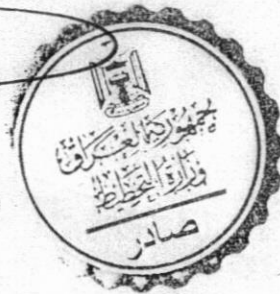 جمهورية العراق
وزارة التخطيط
صادر